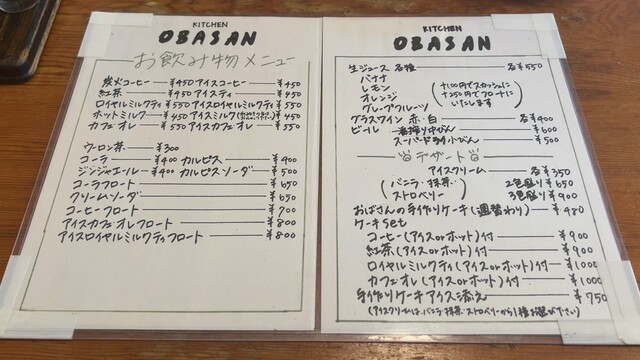 KITCHEN
OBASAN
お飲み物メニュー
炭火コーヒー ¥450 アイスコーヒー ¥450
紅茶 ¥450 アイスティ ¥450
ロイヤルミルクティ ¥550 アイスロイヤルミルクティ ¥550
ホットミルク ¥450 アイスミルク ¥450
カフェオレ ¥550 アイスカフェオレ ¥550
ウーロン茶 ¥300
コーラ ¥400 カルピス ¥400
ジンジャエール ¥400 カルピスソーダ ¥500
コーラフロート ¥650
クリームソーダ ¥650
コーヒーフロート ¥700
アイスカフェオレフロート ¥800
アイスロイヤルミルクティフロート ¥800
KITCHEN
OBASAN
生ジュース 各種 各¥550
バナナ
レモン
オレンジ
グレープフルーツ
+100円でスカッシュに
+250円でフロートに
いたします
グラスワイン 赤・白 各¥400
ビール 一番搾り中びん ¥600
スーパードライ小びん ¥500
デザート
アイスクリーム 各¥350
(バニラ・抹茶・ 2色盛り ¥650
ストロベリー) 3色盛り ¥900
おばさんの手作りケーキ(週替わり) ¥480
ケーキset
コーヒー(アイスorホット)付 ¥900
紅茶(アイスorホット)付 ¥900
ロイヤルミルクティ(アイスorホット)付 ¥1000
カフェオレ(アイスorホット)付 ¥1000
手作りケーキアイス添え ¥750
(アイスクリームは、バニラ・抹茶・ストロベリーから1種お選び下さい)